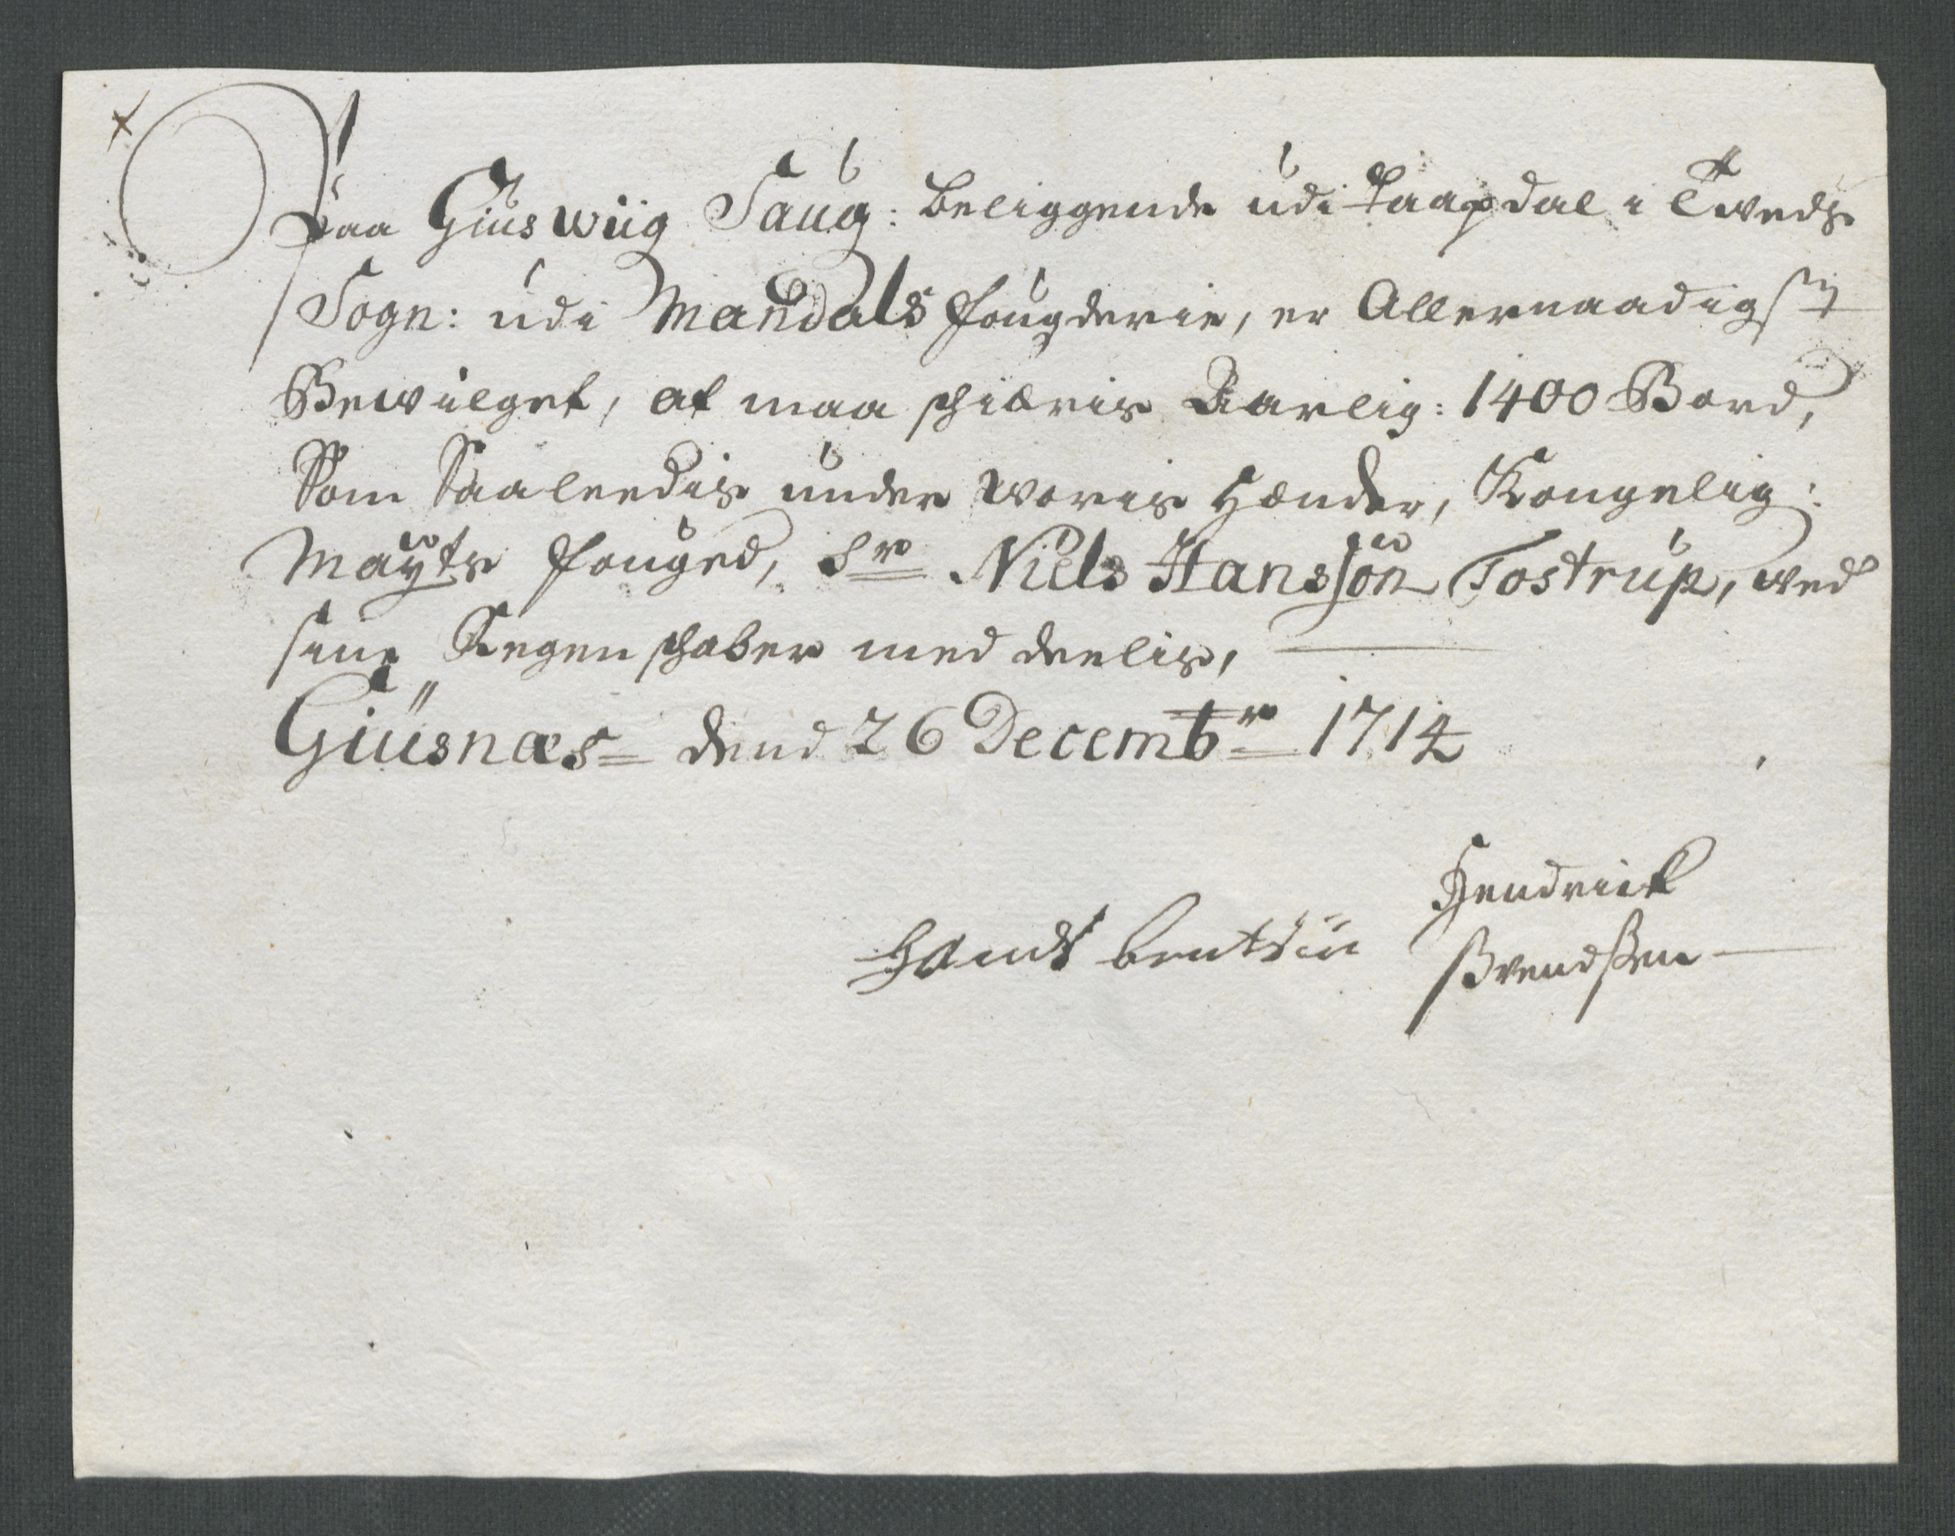 Paa Giuswiig Saug: beliggende udi Taapdal i Tweds
Sogn: udi Mandals fougderie, er Allernaadigst
Bewilget, at maa schiæris Aarlig: 1400 Bord,
Som Saaleedis under woris Hænder, Kongelig:
Mayts fouged, Sr Niels Hanssön Tostrup, wed
sine Regenschaber med deelis,
Giusnæs dend 26 Decembr 1714
Hendrick
Hands bentsøn
Svendssen